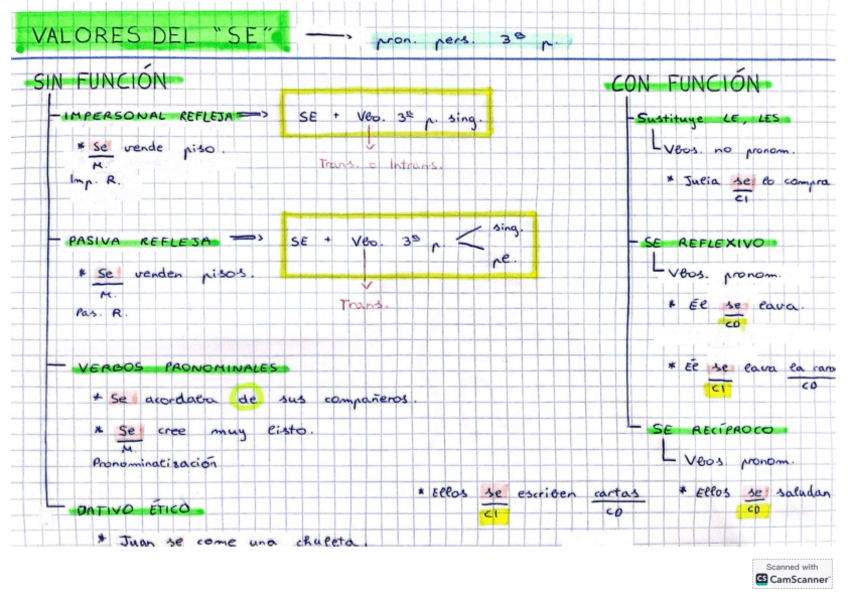 VALORES DEL "SE" → pron. pers. 3ª p.
SIN FUNCIÓN
IMPERSONAL REFLEJA ⇒ SE + Vbo. 3ª p. sing.
Trans. o Intrans.
* Se vende piso.
M.
Imp. R.
PASIVA REFLEJA ⇒ SE + Vbo. 3ª p < sing.
pl.
Trans.
* Se venden pisos.
M.
Pas. R.
VERBOS PRONOMINALES
* Se acordaba de sus compañeros.
* Se cree muy listo.
M.
Pronominalización
DATIVO ÉTICO
* Juan se come una chuleta.
CON FUNCIÓN
Sustituye LE, LES
Vbos. no pronom.
* Julia se lo compra
CI
SE REFLEXIVO
Vbos. pronom.
* Él se lava.
CD
* Él se lava la cara
CI CD
SE RECÍPROCO
Vbos. pronom.
* Ellos se escriben cartas
CI CD
* Ellos se saludan
CD
Scanned with
CS CamScanner